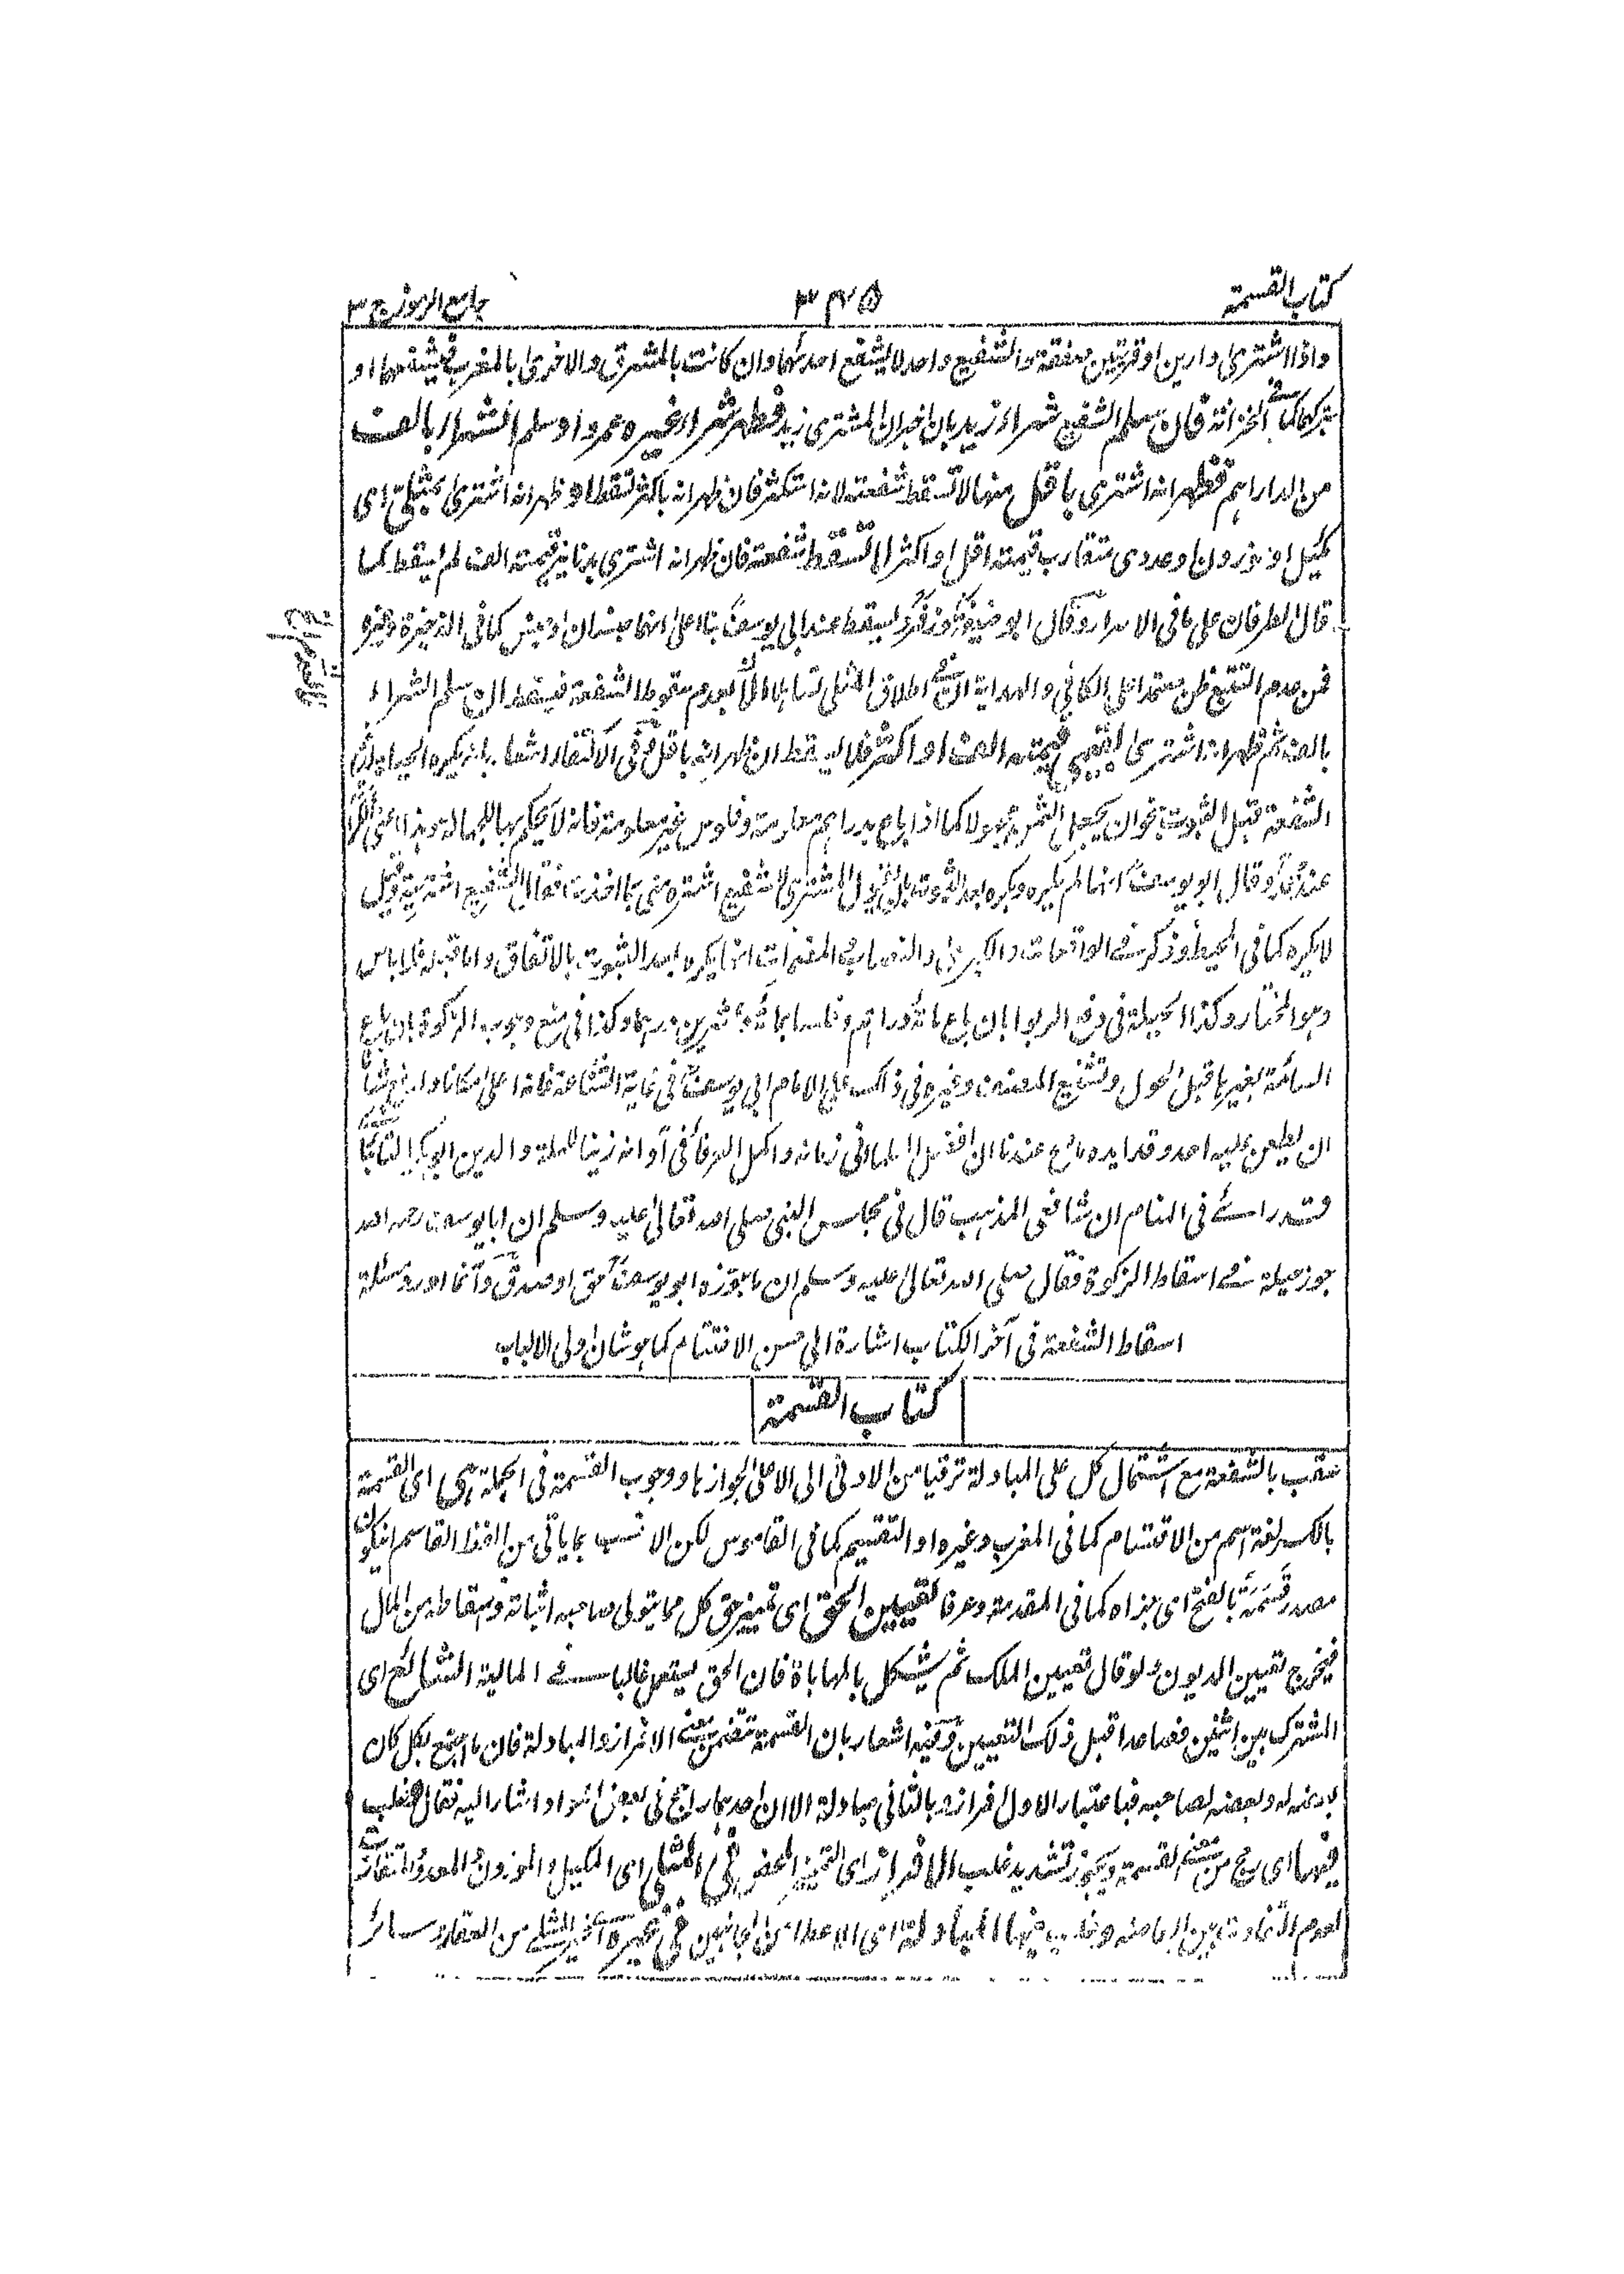 كتاب القسمة
٣٤٥
جامع الرموز ج ٣
واذا اشترى دارين او قريتين صفقة والشفيع واحد لا يشفع احدىهما وان كانت بالمشرق والاخرى بالمغرب فيشفعهما او
يتركهما كما في الخزانة فان سلم الشفيع شراء زيد بان اخبر ان المشترى زيد فظهر شراء غيره عمرو او سلم الشراء بالف
من الدراهم فظهر انه اشترى باقل منها لا تسقط شفعته لانه استكثر فان ظهر انه باكثر تسقط او ظهر انه اشترى بمثلي اى
كيل او موزون او عددى متقارب قيمته اقل او اكثر لا تسقط شفعته فان ظهر انه اشترى بدنانير قيمته الف لم يسقط كما
قال الطرفان على ما فى الاسرار وقال ابو حنيفة وزفر يسقط عند ابى يوسف بناء على انهما جنسان او جنس كما فى الذخيرة وغيره
فمن عدم التتبع ظن معتمدا على الكافى والهداية ان اطلاق المثلى تساهلا لعدم سقوط الشفعة فيسقط ان سلم الشراء
بالف ثم ظهر انه اشترى بقيمى قيمته الف او اكثر فلا يسقط ان ظهر انه باقل وفى الاكتفاء اشعار بانه يكره الحيلة
الشفعة قبل الثبوت بنحو ان يجعل الثمن مجهولا كما اذا باع بدراهم معلومة وفلوس غير معلومة فانه لا يحكم بها للجهالة وهذا
عند محمد وقال ابو يوسف انها لم يكره ويكره بعد الثبوت بان يقول المشترى للشفيع اشتره منى بما اخذت فقال الشفيع اشتريت وقيل
لا يكره كما فى المحيط وذكر فى الواقعات والكبرى والنصاب والمضمرات انها يكره بعد الثبوت بالاتفاق واما قبله فلا باس
وهو المختار وكذا الحيلة فى دفع الربوا بان باع مائة دراهم وفلسا بمائة وعشرين درهما وكذا فى منع وجوب الزكوة بان باع
السائمة بغيرها قبل الحول وتشنيع المصنف وغيره فى ذلك على الامام ابى يوسف فى غاية الشناعة فانه اعلى مكانا وارفع شانا
ان يطعن عليه احد وقد ايده ما صح عندنا ان افضل العلماء فى زمانه واكمل العرفاء فى اوانه زين الملة والدين ابى بكر التايبادى
قد راى فى المنام ان شافعى المذهب قال فى مجلس النبى صلى الله تعالى عليه وسلم ان ابا يوسف رحمه الله
جوز حيلة فى اسقاط الزكوة فقال صلى الله تعالى عليه وسلم ان ما جوزه ابو يوسف حق او صدق وانما اورد مسئلة
اسقاط الشفعة فى آخر الكتاب اشارة الى حسن الاختتام كما هو شان اولى الالباب
كتاب القسمة
عقب بالشفعة مع اشتمال كل على المبادلة ترقيا من الادنى الى الاعلى لجوازها ووجوب القسمة فى الجملة هى اى القسمة
بالكسر لغة اسم من الاقتسام كما فى المغرب وغيره او التقسيم كما فى القاموس لكن الانسب بما ياتى من لفظ القاسم ان يكون
مصدر قسمة بالفتح اى جزاه كما فى المقدمة وعرفا تعيين الحق اى تمييز حق كل مما يتولى صاحبه اثباته واسقاطه من المال
فيخرج تعيين الديون ولو قال تعيين الملك ثم يشكل بالمهاياة فان الحق يستعمل غالبا فى المالية الشائع اى
المشترك بين اثنين فصاعدا قبل ذلك التعيين وفيه اشعار بان القسمة تتضمن معنى الافراز والمبادلة فان ما اجتمع لكل كان
بعضه له وبعضه لصاحبه فباعتبار الاول افراز وبالثانى مبادلة الا ان احدهما راجح فى بعض المواد واشار اليه فقال وغلب
فيها اى رجح من معنى القسمة ويجوز تشديد غلب الافراز اى التمييز المحض فى المثلى اى المكيل والموزون والمعدود المتقارب
لعدم التفاوت بين ابعاضه وغلب فيها المبادلة اى الاعطاء من الجانبين فى غيره اى غير المثلى من العقار وسائر